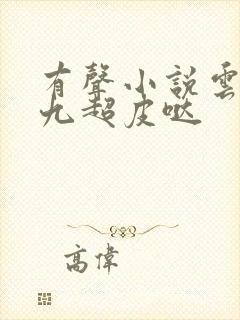 有聲小說雲
九超皮哒
高偉